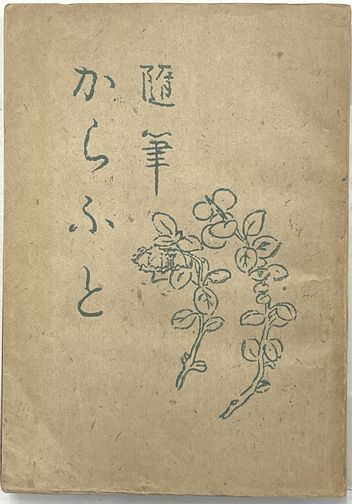 随筆
からふと